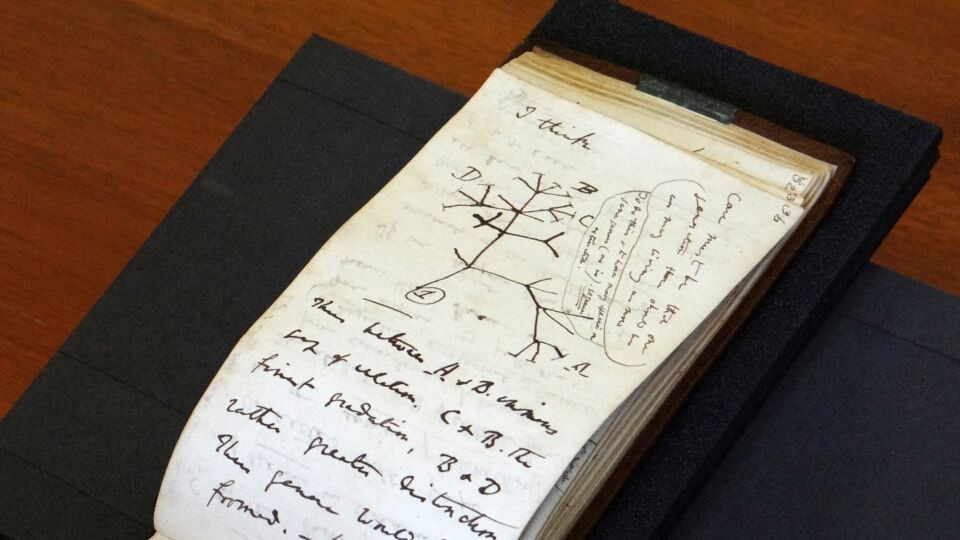 I think
36
Case must be that one
generation then should be
as many living as now
To do this & to have many species in
same genus (as is) requires
extinction
B
D
C
A
1
Thus between A & B. immense
gap of relation. C & B. The
finest gradation, B & D
rather greater distinction
Thus genera would be
formed. —